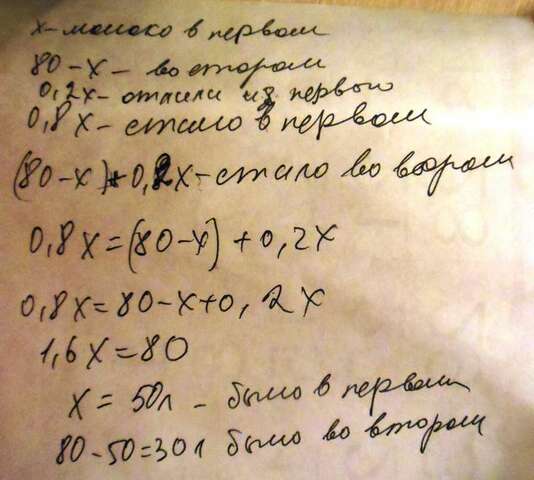 х - молоко в первом
80-х - во втором
0,2х - отлили из первого
0,8х - стало в первом
(80-х)+0,2х - стало во втором
0,8х=(80-х)+0,2х
0,8х=80-х+0,2х
1,6х=80
х=50л - было в первом
80-50=30л было во втором